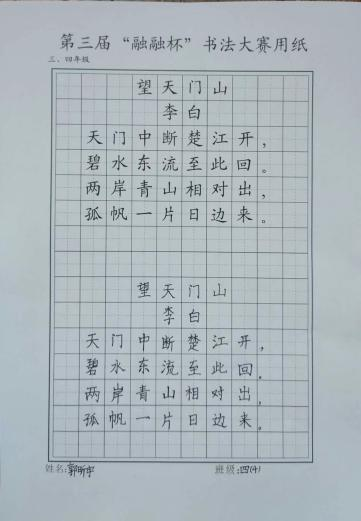 第三届“融融杯”书法大赛用纸
三、四年级
望天门山
李白
天门中断楚江开，
碧水东流至此回。
两岸青山相对出，
孤帆一片日边来。
望天门山
李白
天门中断楚江开，
碧水东流至此回。
两岸青山相对出，
孤帆一片日边来。
姓名：郭昕宇 班级：四(4)